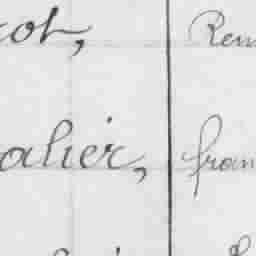 cot, Ren
alier, fran